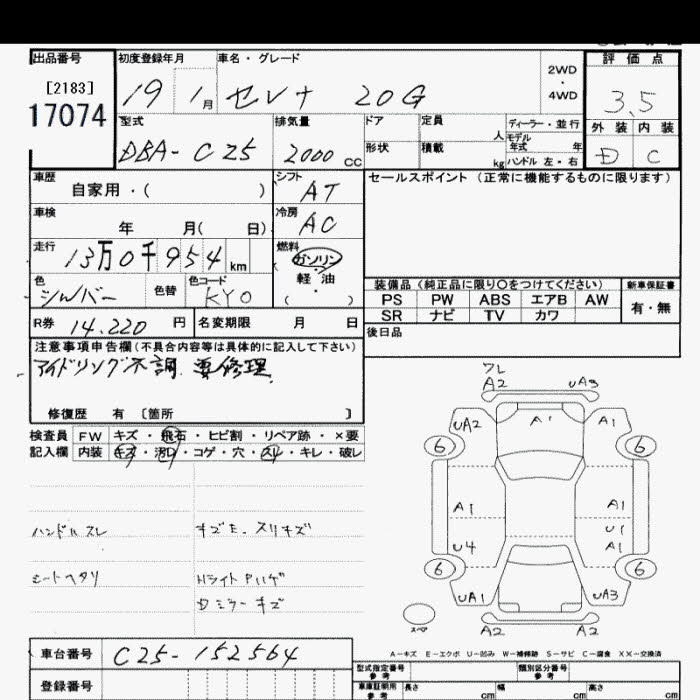 出品番号 初度登録年月 車名・グレード 評価点
[2183]
17074
19 1月 セレナ 20G
2WD
・
4WD
3.5
型式 排気量 ドア 定員 人 ディーラー・並行
モデル年式 年
外装 内装
DBA-C25 2000cc
形状 積載 kg ハンドル 左・右
D C
車歴 自家用・( ) シフト AT
セールスポイント (正常に機能するものに限ります)
車検 年 月( 日) 冷房 AC
走行 13万0千954km 燃料 ガソリン
軽・油
( )
色 シルバー 色替 色コード KY0
装備品(純正品に限り○をつけてください) 新車保証書
PS PW ABS エアB AW
SR ナビ TV カワ
有・無
R券 14.220円 名変期限 月 日
後日品
注意事項申告欄(不具合内容等は具体的に記入して下さい)
アイドリング不調、要修理
修復歴 有 〔箇所 〕
検査員 FW キズ・飛石・ヒビ割・リペア跡・×要
記入欄 内装 キズ・汚れ・コゲ・穴・スレ・キレ・破レ
ハンドルスレ
キズE、スリキズ
シートヘタリ
Hライトハゲ
Dミラーキズ
ワレ
A2 UA3
UA2 A1 A1
6 6
A1 A1
U1
U4 A1
6 6
UA1 UA3
スペア
A2 A2
A-キズ E-エクボ U-凹み W-補修跡 S-サビ C-腐食 XX-交換済
車台番号 C25-152564
登録番号
型式指定番号 参考 類別区分番号 参考
車庫証明用 参考 長さ cm 幅 cm 高さ cm